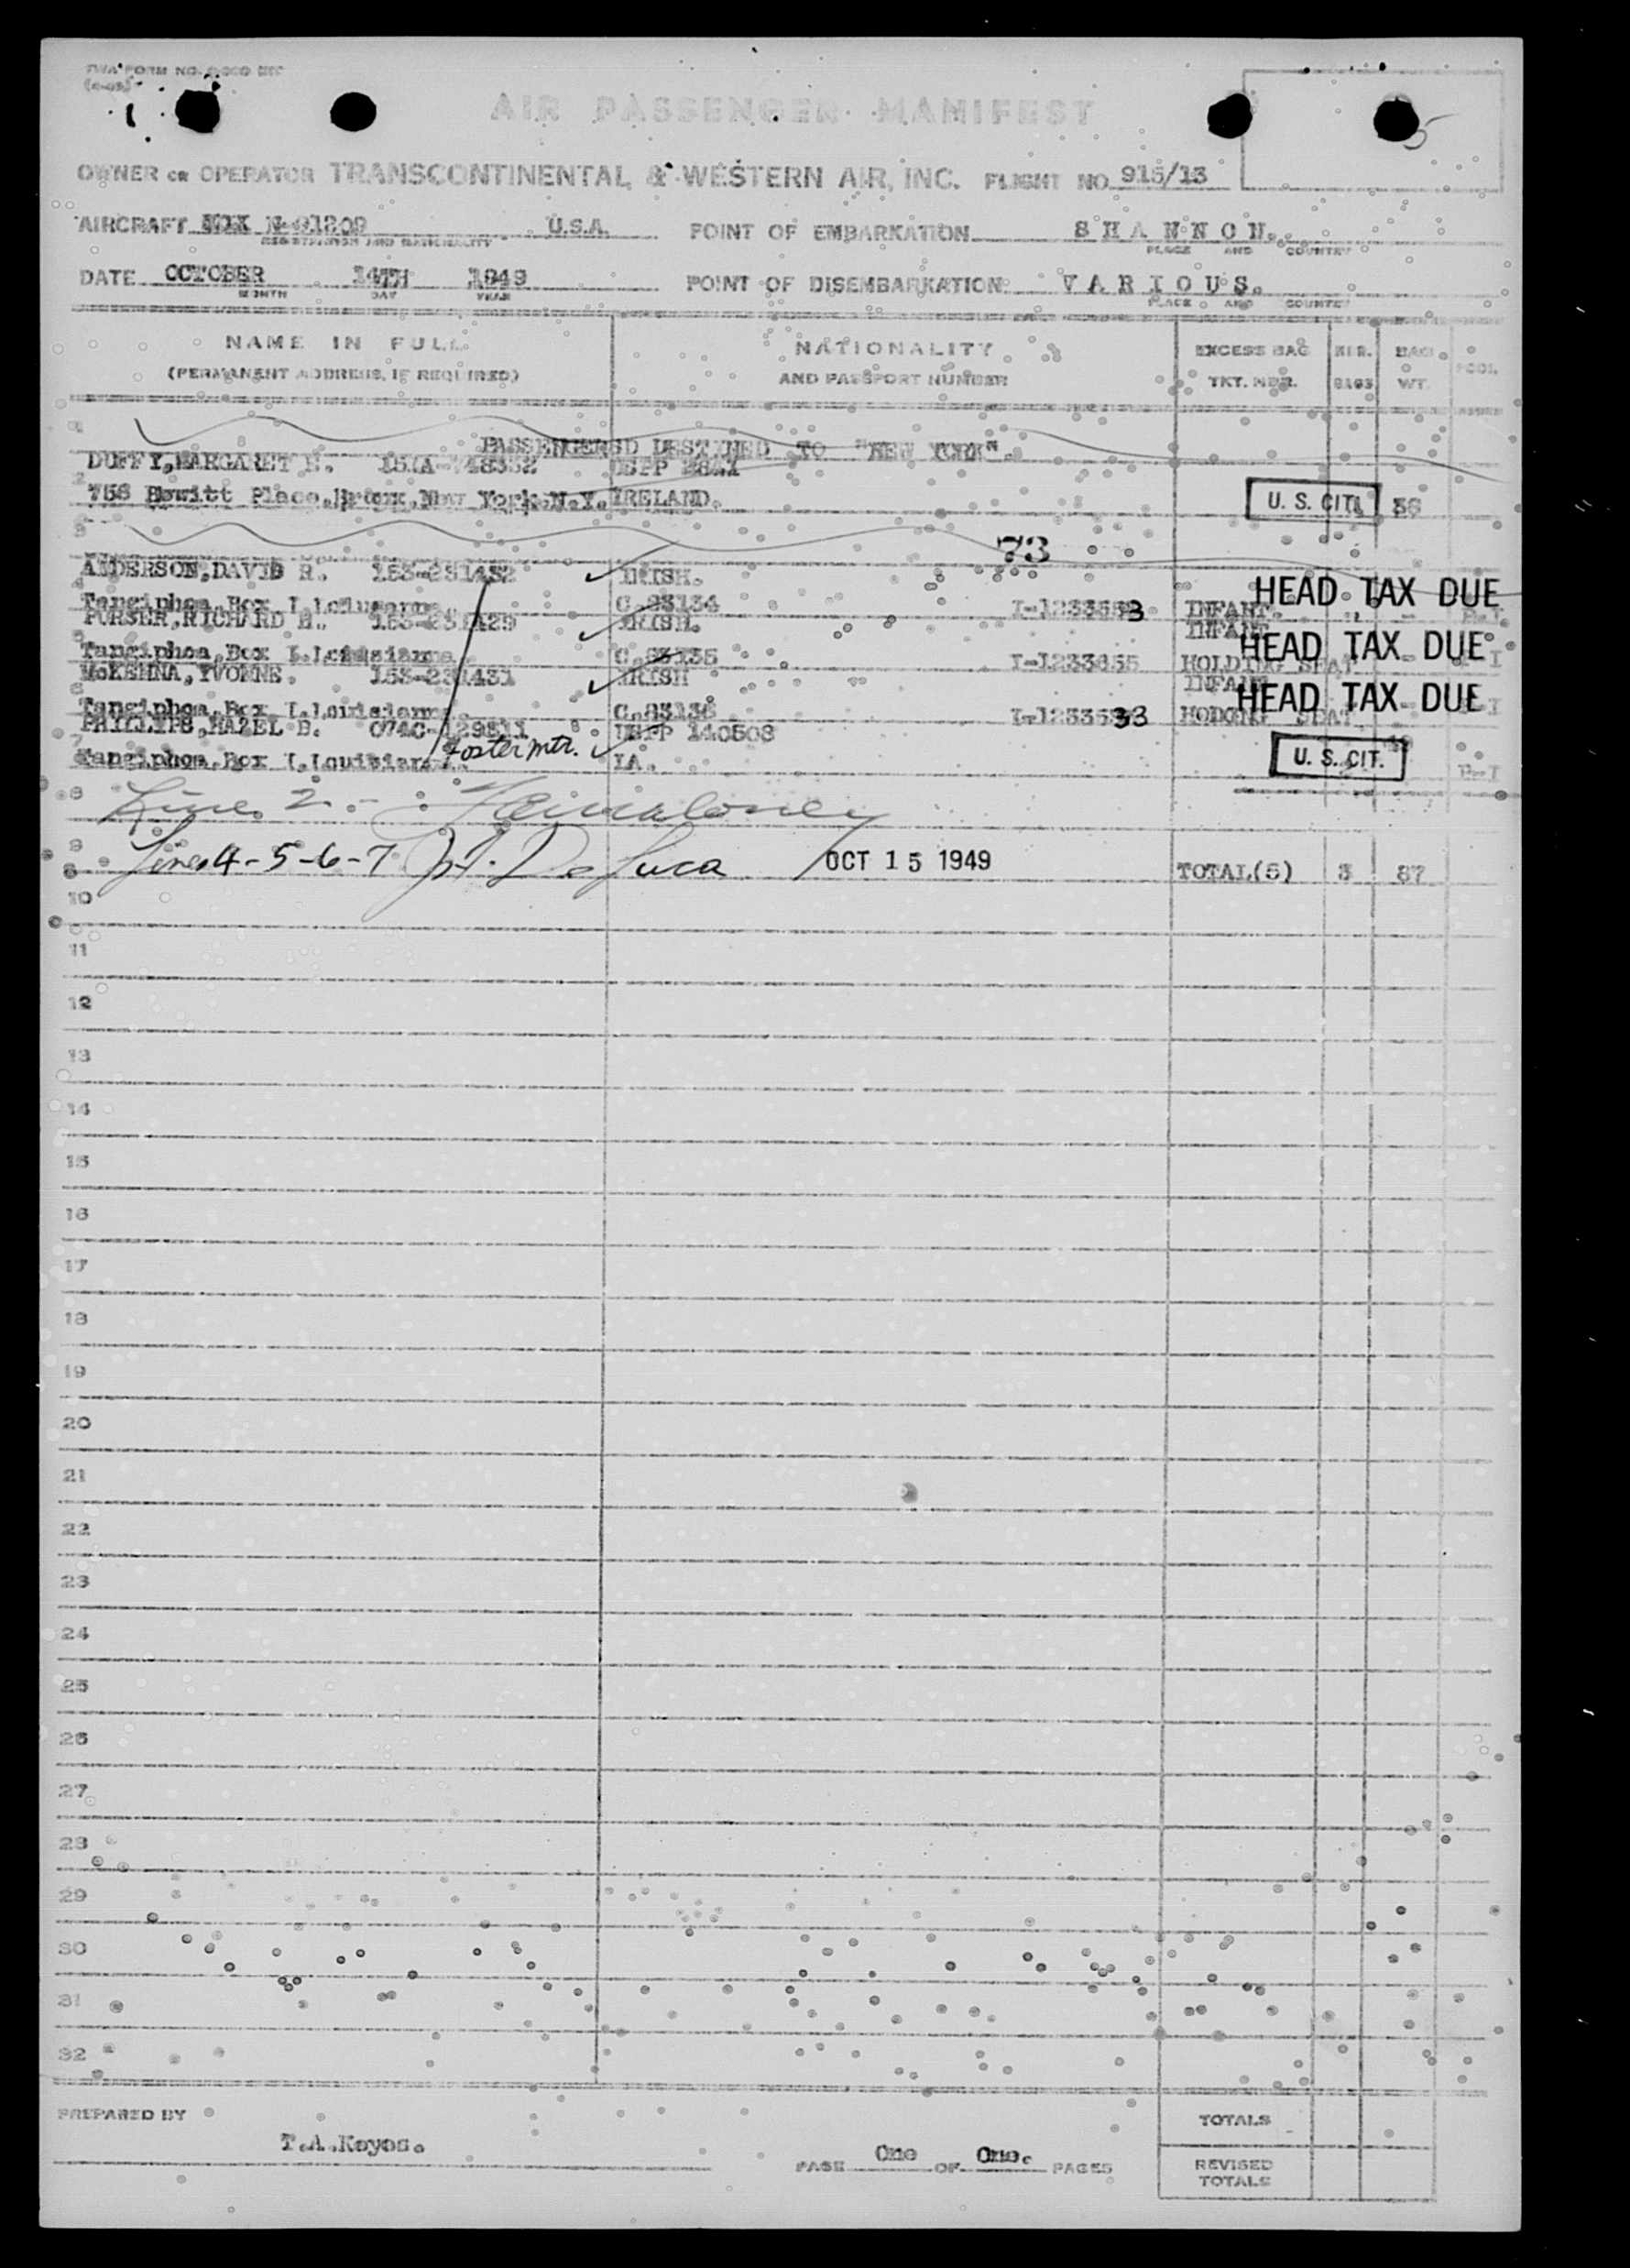 AIR PASSENGER MANIFEST
5
OWNER OR OPERATOR TRANSCONTINENTAL & WESTERN AIR, INC. FLIGHT NO. 915/13
AIRCRAFT N-91209 U.S.A. POINT OF EMBARKATION S H A N N O N.
REGISTRATION AND NATIONALITY PLACE AND COUNTRY
DATE OCTOBER 14TH 1949 POINT OF DISEMBARKATION V A R I O U S.
MONTH DAY YEAR PLACE AND COUNTRY
NAME IN FULL NATIONALITY EXCESS BAG NBR. BAG
(PERMANENT ADDRESS, IF REQUIRED) AND PASSPORT NUMBER TKT. NBR. BAGS WT.
1
PASSENGERSD DESTINED TO "NEW YORK".
DUFFY, MARGARET USPP
2
Hewitt Place, Bronx, New York, N.Y. IRELAND. U. S. CIT.
3
73
ANDERSON, DAVID R. 153-231432 IRISH.
4
Tangiphoa, Box I. Louisiana. C.83134 INFANT. HEAD TAX DUE
PURSER, RICHARD 153-231429 IRISH. INFANT
5
Tangiphoa, Box I. Louisiana. C.83135 I-1233655 HOLDING SEAT HEAD TAX DUE
McKENNA, YVONNE. 153-231431 IRISH INFANT
6
Tangiphoa, Box I. Louisiana. C.83136 SEAT HEAD TAX DUE
PHILLIPS, HAZEL B. USPP 140508
7
Tangiphoa, Box I. Louisiana. Foster mtr. LA. U. S. CIT.
8 Line 2 -
9 Lines 4-5-6-7 De Luca OCT 15 1949 TOTAL(S) 3 87
10
11
12
13
14
15
16
17
18
19
20
21
22
23
24
25
26
27
28
29
30
31
32
PREPARED BY T.A.Keyes. TOTALS
PAGE One OF One. PAGES REVISED
TOTALS